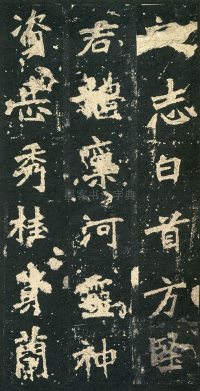 之志白首方堅
君體稟河靈神
資岳秀桂質蘭